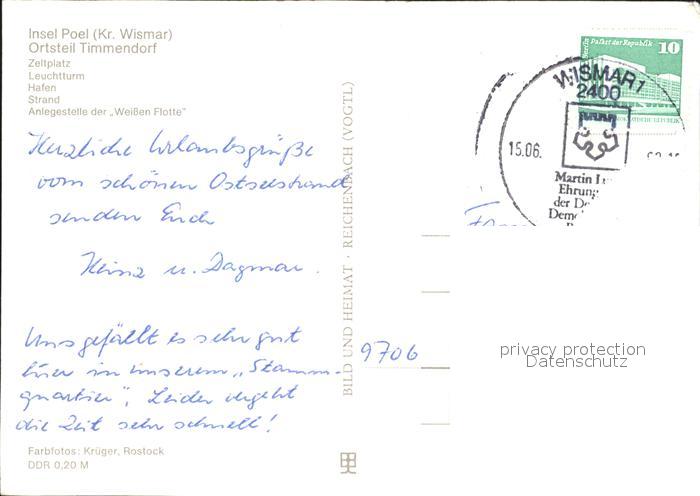 Insel Poel (Kr. Wismar)
Ortsteil Timmendorf
Zeltplatz
Leuchtturm
Hafen
Strand
Anlegestelle der „Weißen Flotte"
Herzliche Urlaubsgrüße
vom schönen Ostseestrand
senden Euch
Heinz u. Dagmar.
Uns gefällt es sehr gut
hier in unserem „Stamm-
quartier". Leider vergeht
die Zeit sehr schnell!
Farbfotos: Krüger, Rostock
DDR 0,20 M
BILD UND HEIMAT · REICHENBACH (VOGTL)
9706
Berlin Palast der Republik 10
WISMAR 1
2400
15.06.
Martin
Ehrung
der
privacy protection
Datenschutz